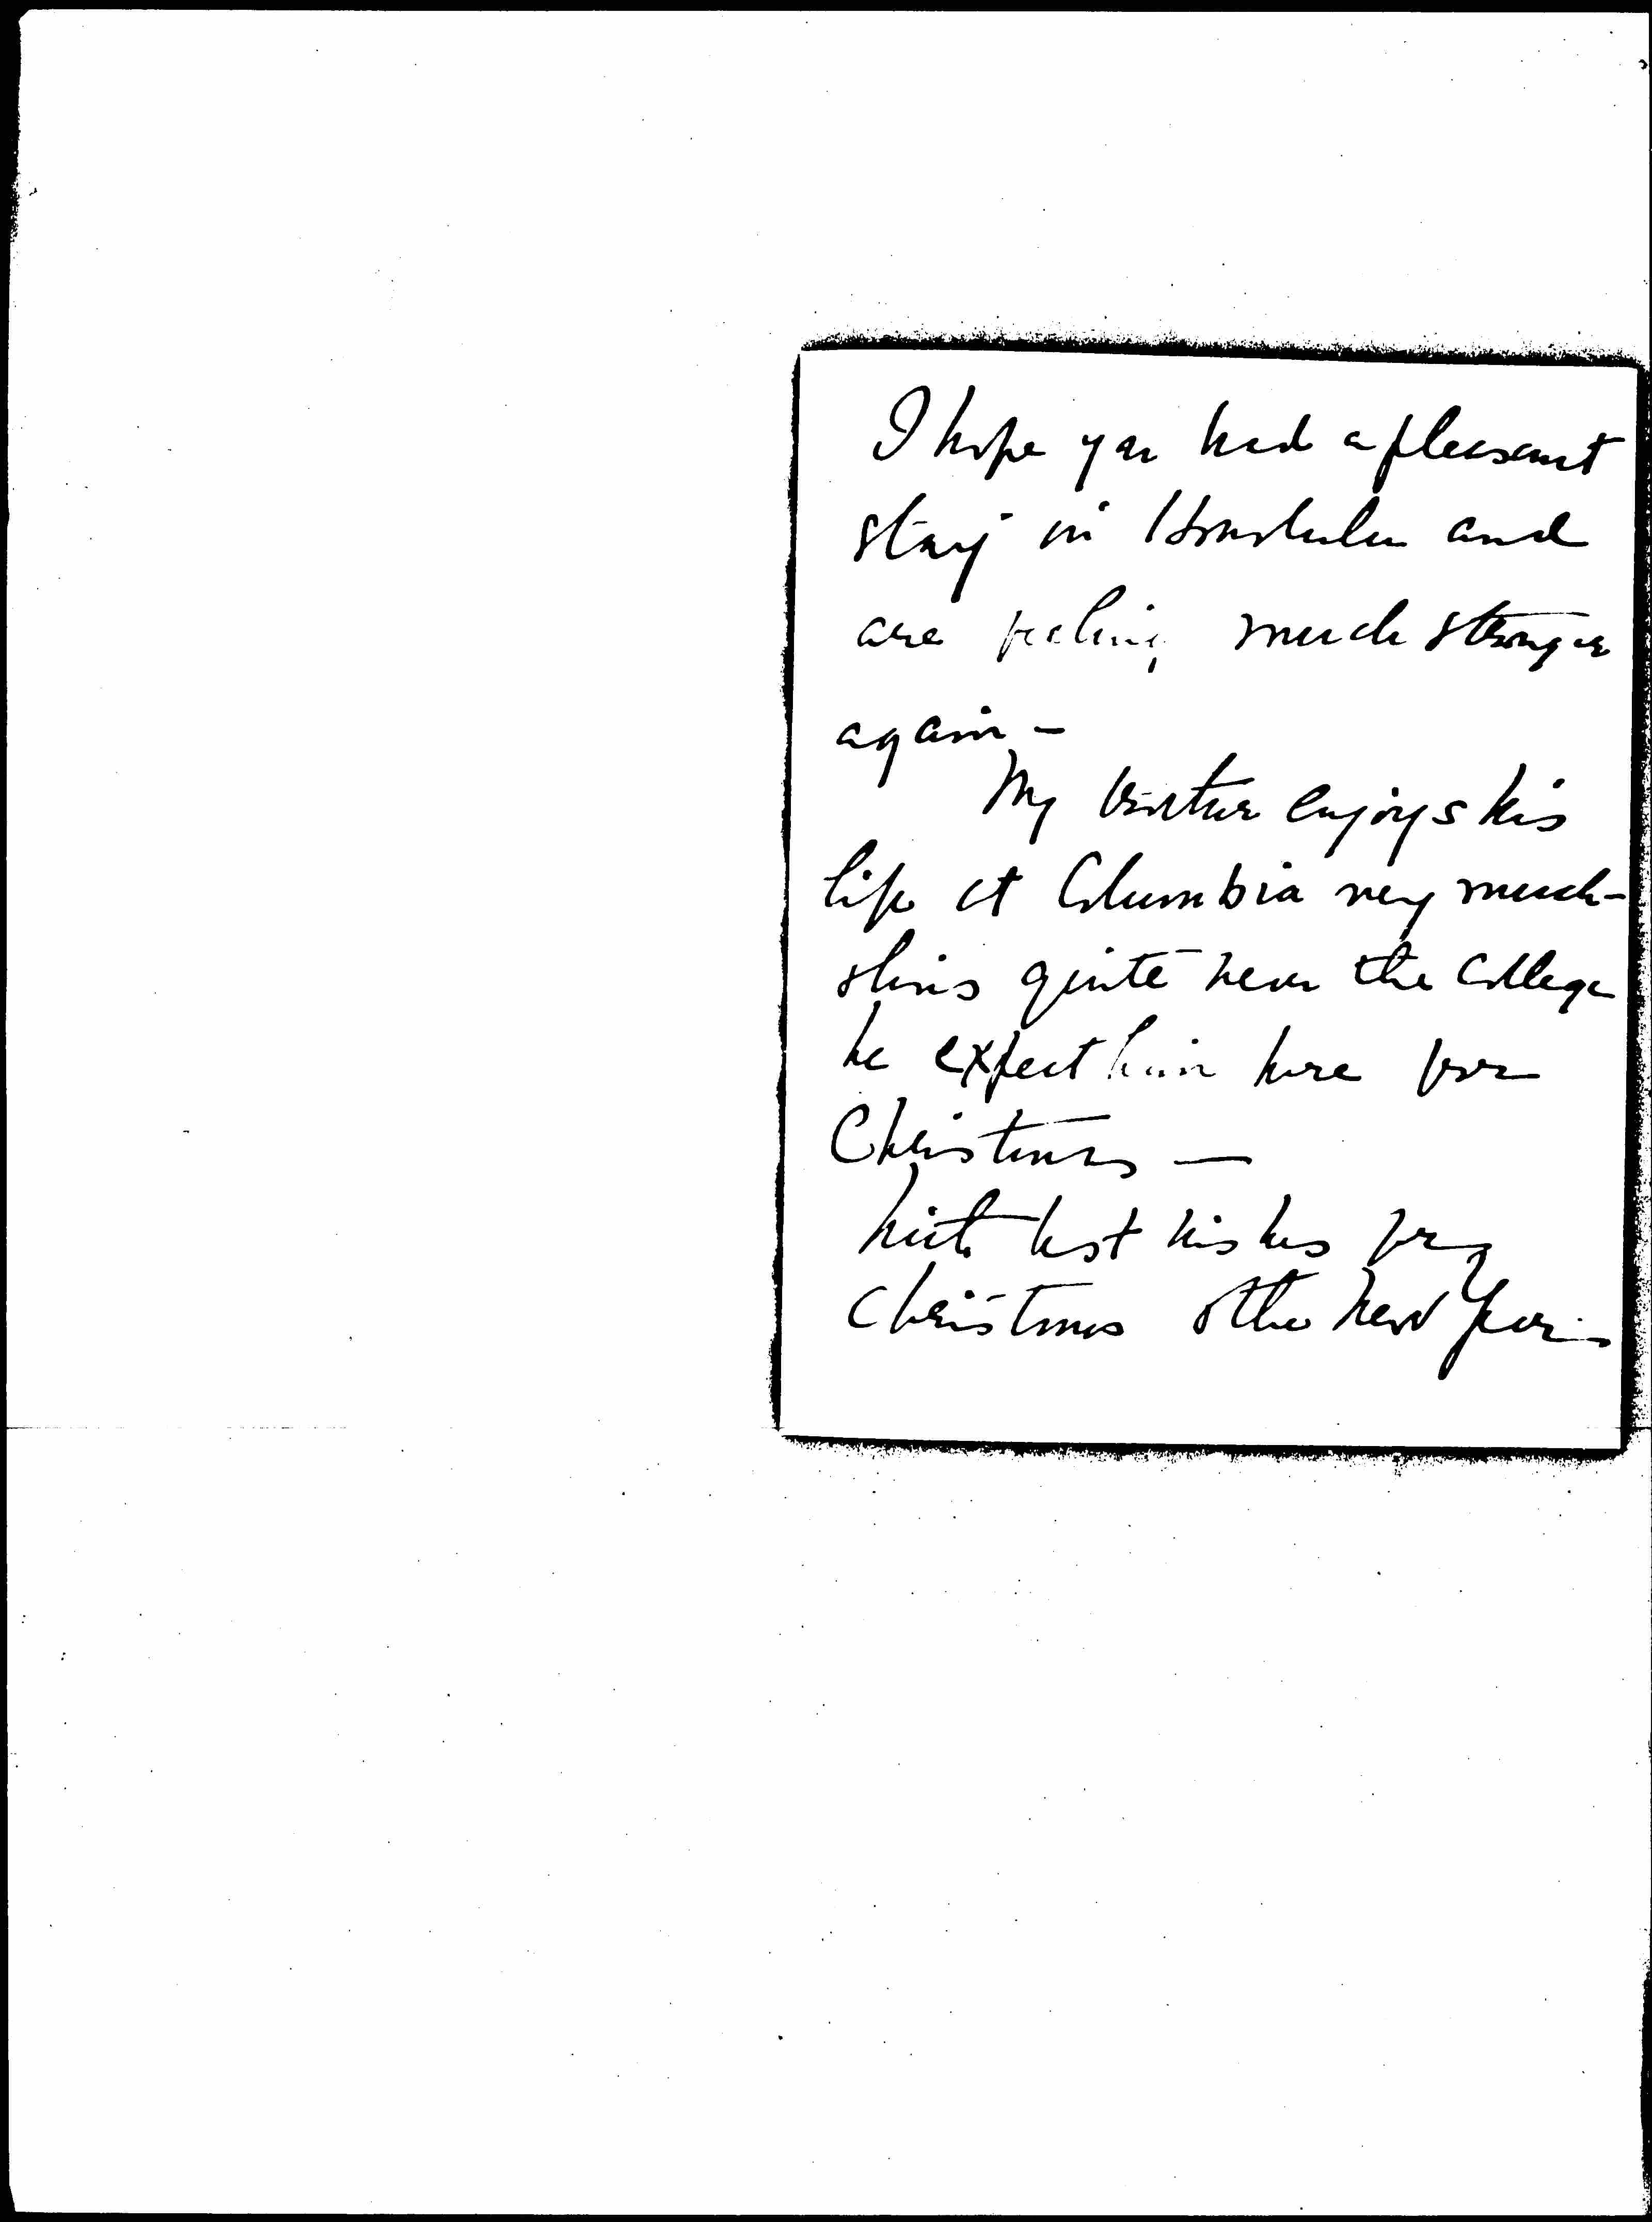 I hope you had a pleasant
stay in Honolulu and
are feeling much stronger
again -
My brother enjoys his
life at Columbia very much -
& lives quite near the College
We expect him here for
Christmas —
With best wishes for
Christmas & the New Year -